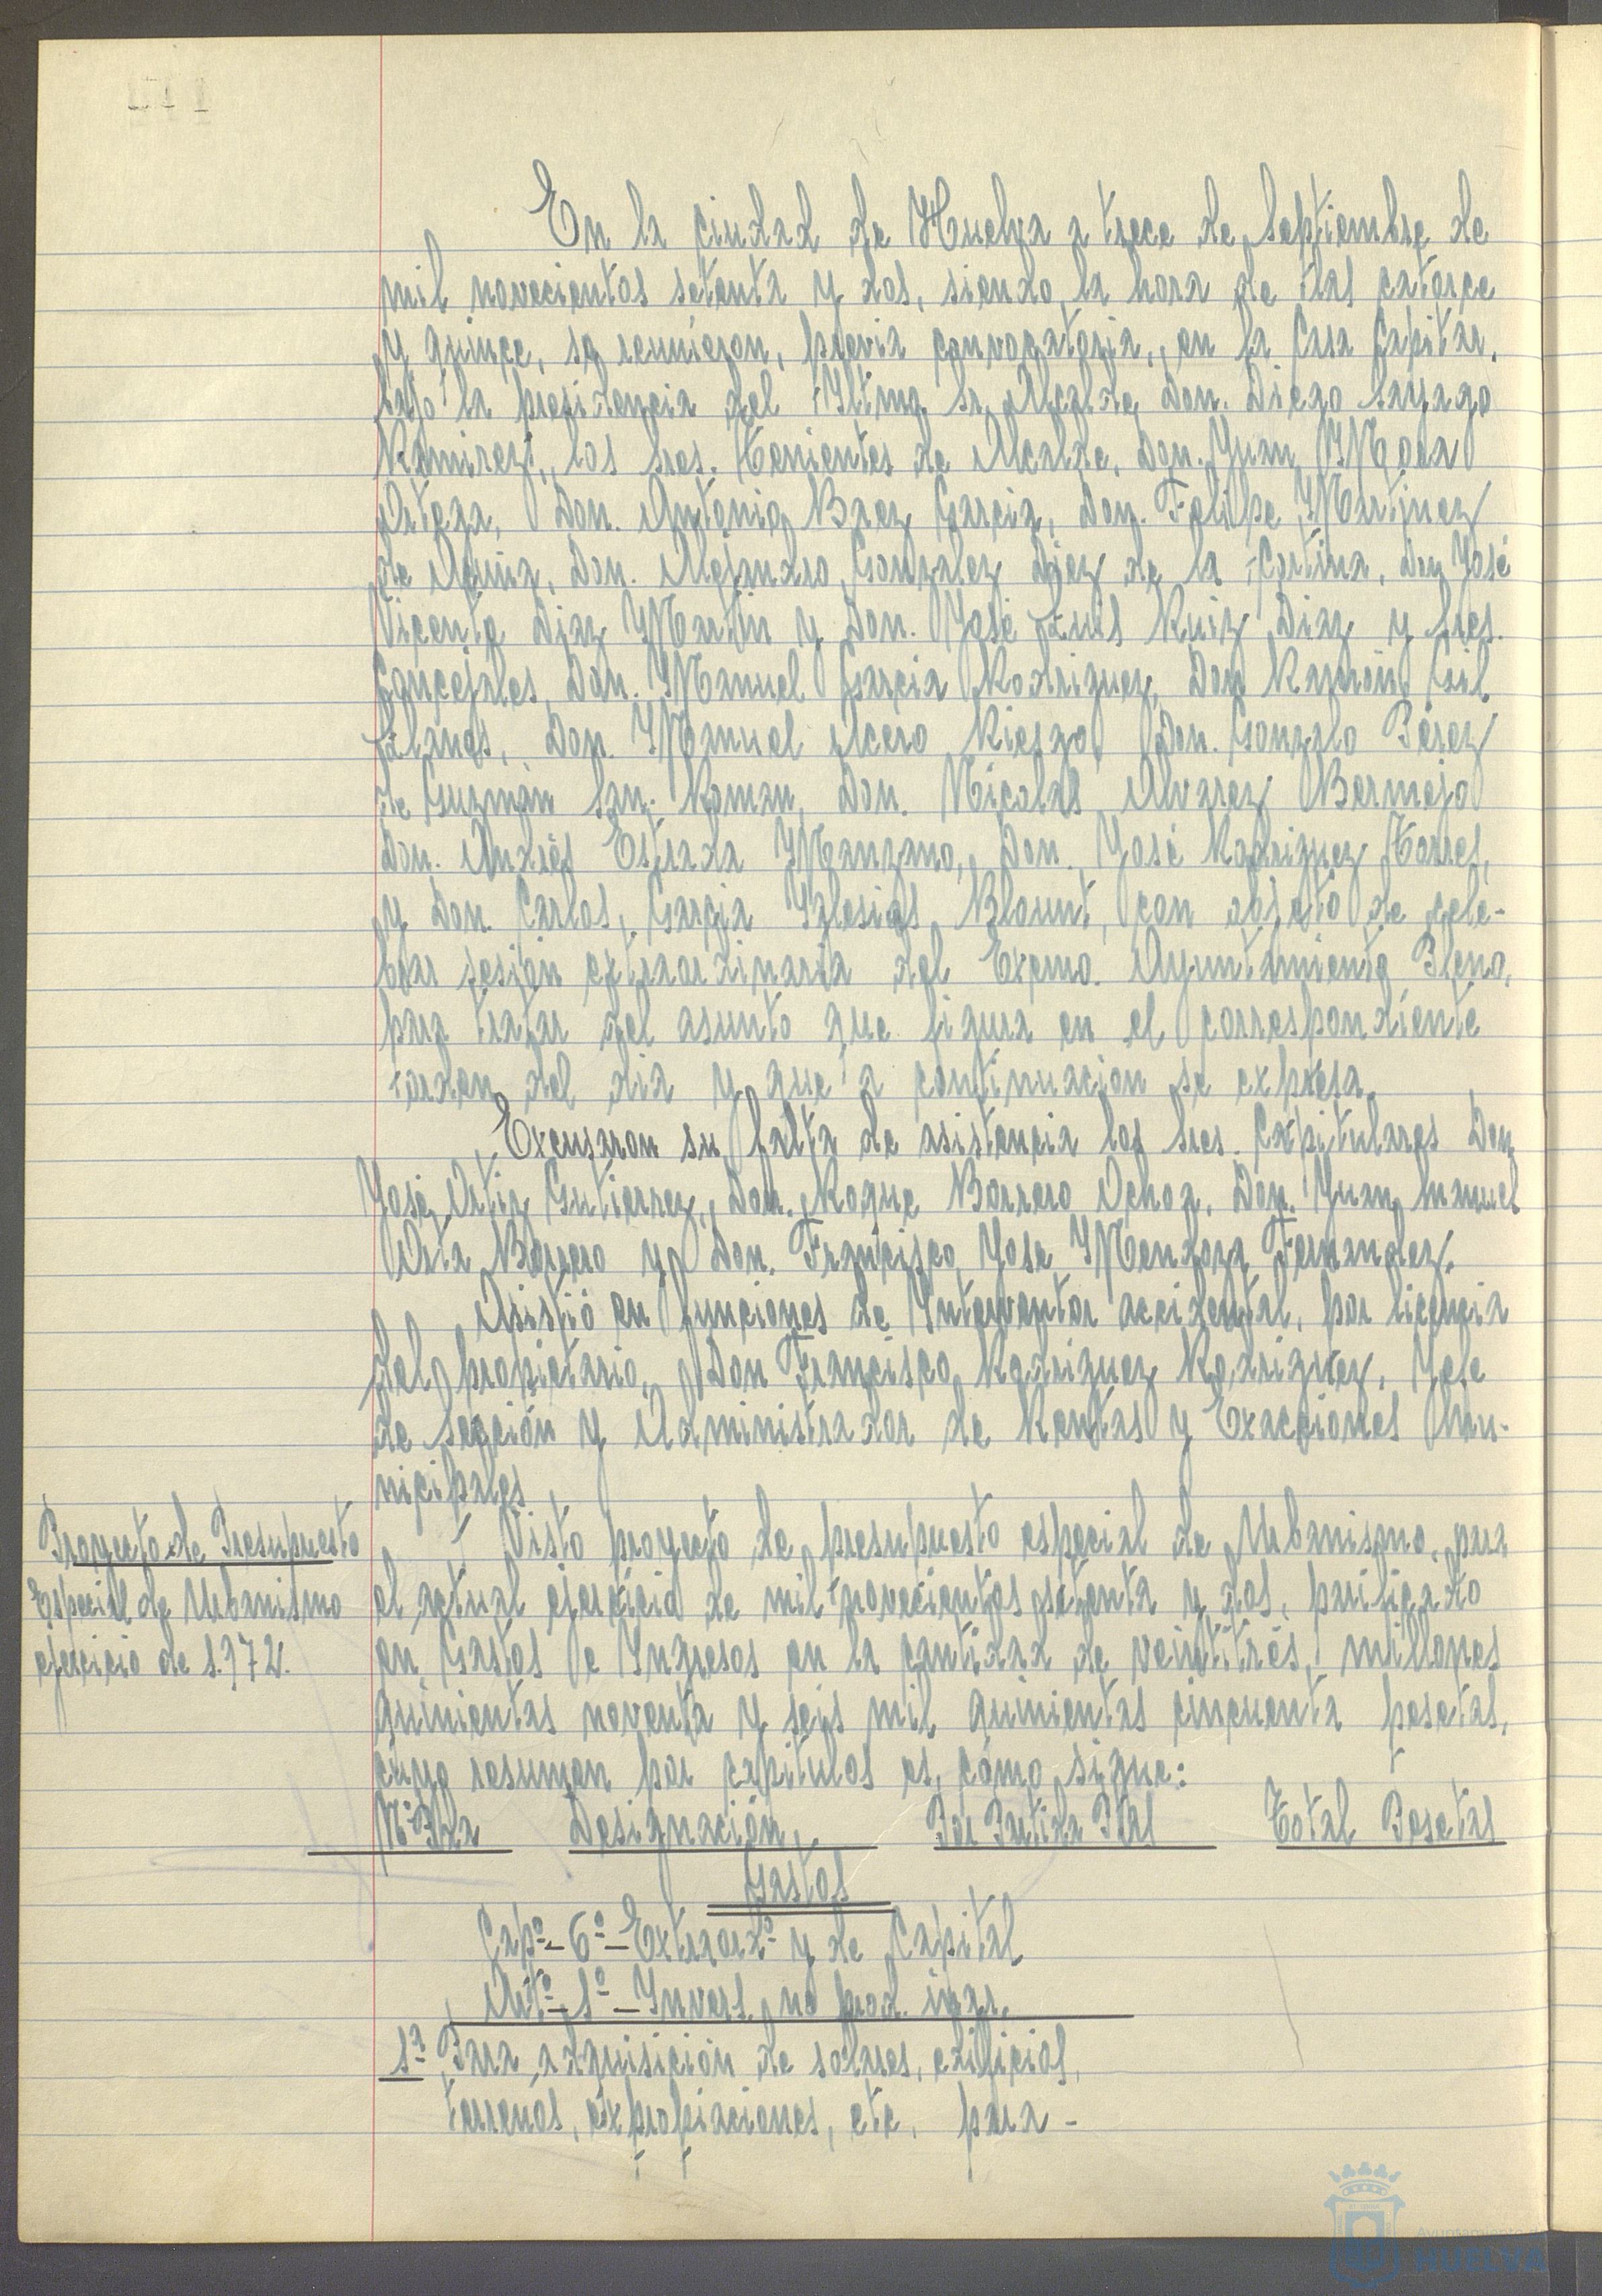 En la ciudad de Huelva a trece de Septiembre de
mil novecientos setenta y dos, siendo la hora de las catorce
y quince, se reunieron, previa convocatoria, en la Casa Capitar,
bajo la presidencia del Iltmo. Sr. Alcalde Don. Diego Sayago
Ramirez, los Sres. Tenientes de Alcalde, Don. Juan Mora
Ortega, Don. Antonio Baez Garcia, Don. Felipe Martinez
de Acuña, Don. Alejandro Gonzalez Diez de la Cortina, Don José
Vicente Diaz Martin y Don. José Luis Ruiz Diaz y Sres.
Concejales, Don. Manuel Garcia Rodriguez, Don Ramón Gil
Llanes, Don. Manuel Acero Riesgo, Don. Gonzalo Pérez
de Guzmán San. Roman, Don. Nicolás Alvarez Bermejo
Don. Andrés Estrada Manzano, Don. José Rodriguez Torres,
y Don. Carlos, Garcia Iglesias Blount, con objeto de cele-
brar sesión extraordinaria del Excmo. Ayuntamiento Pleno,
para tratar del asunto que figura en el correspondiente
orden del dia y que a continuacion se expresa.
Excusaron su falta de asistencia los Sres. Capitulares Don
José Ortiz Gutierrez, Don. Roque Barrero Ochoa, Don. Juan Manuel
Orta Borrero y Don. Francisco José Mendoza Fernandez.
Asistió en funciones de Interventor accidental, por licencia
del propietario, Don Francisco Rodriguez Rodriguez, Jefe
de Sección y Administrador de Rentas y Exacciones Mu-
nicipales
Proyecto de Presupuesto
Especial de Urbanismo
ejercicio de 1.972.
Visto proyecto de presupuesto especial de Urbanismo, para
el actual ejercicio de mil novecientos setenta y dos,
en Gastos e Ingresos en la cantidad de veintitrés, millones
quinientas noventa y seis mil quinientas cincuenta pesetas,
cuyo resumen por capitulos es, cómo sigue:
Nº Pda Designación Por Partida Ptas Total Pesetas
Gastos
Capº-6º-Extraordº y de Capital
Artº-1º-Invers. no prod. ingr.
1ª Para adquisición de solares, edificios,
terrenos, expropiaciones, etc, para -
Ayuntamiento
HUELVA